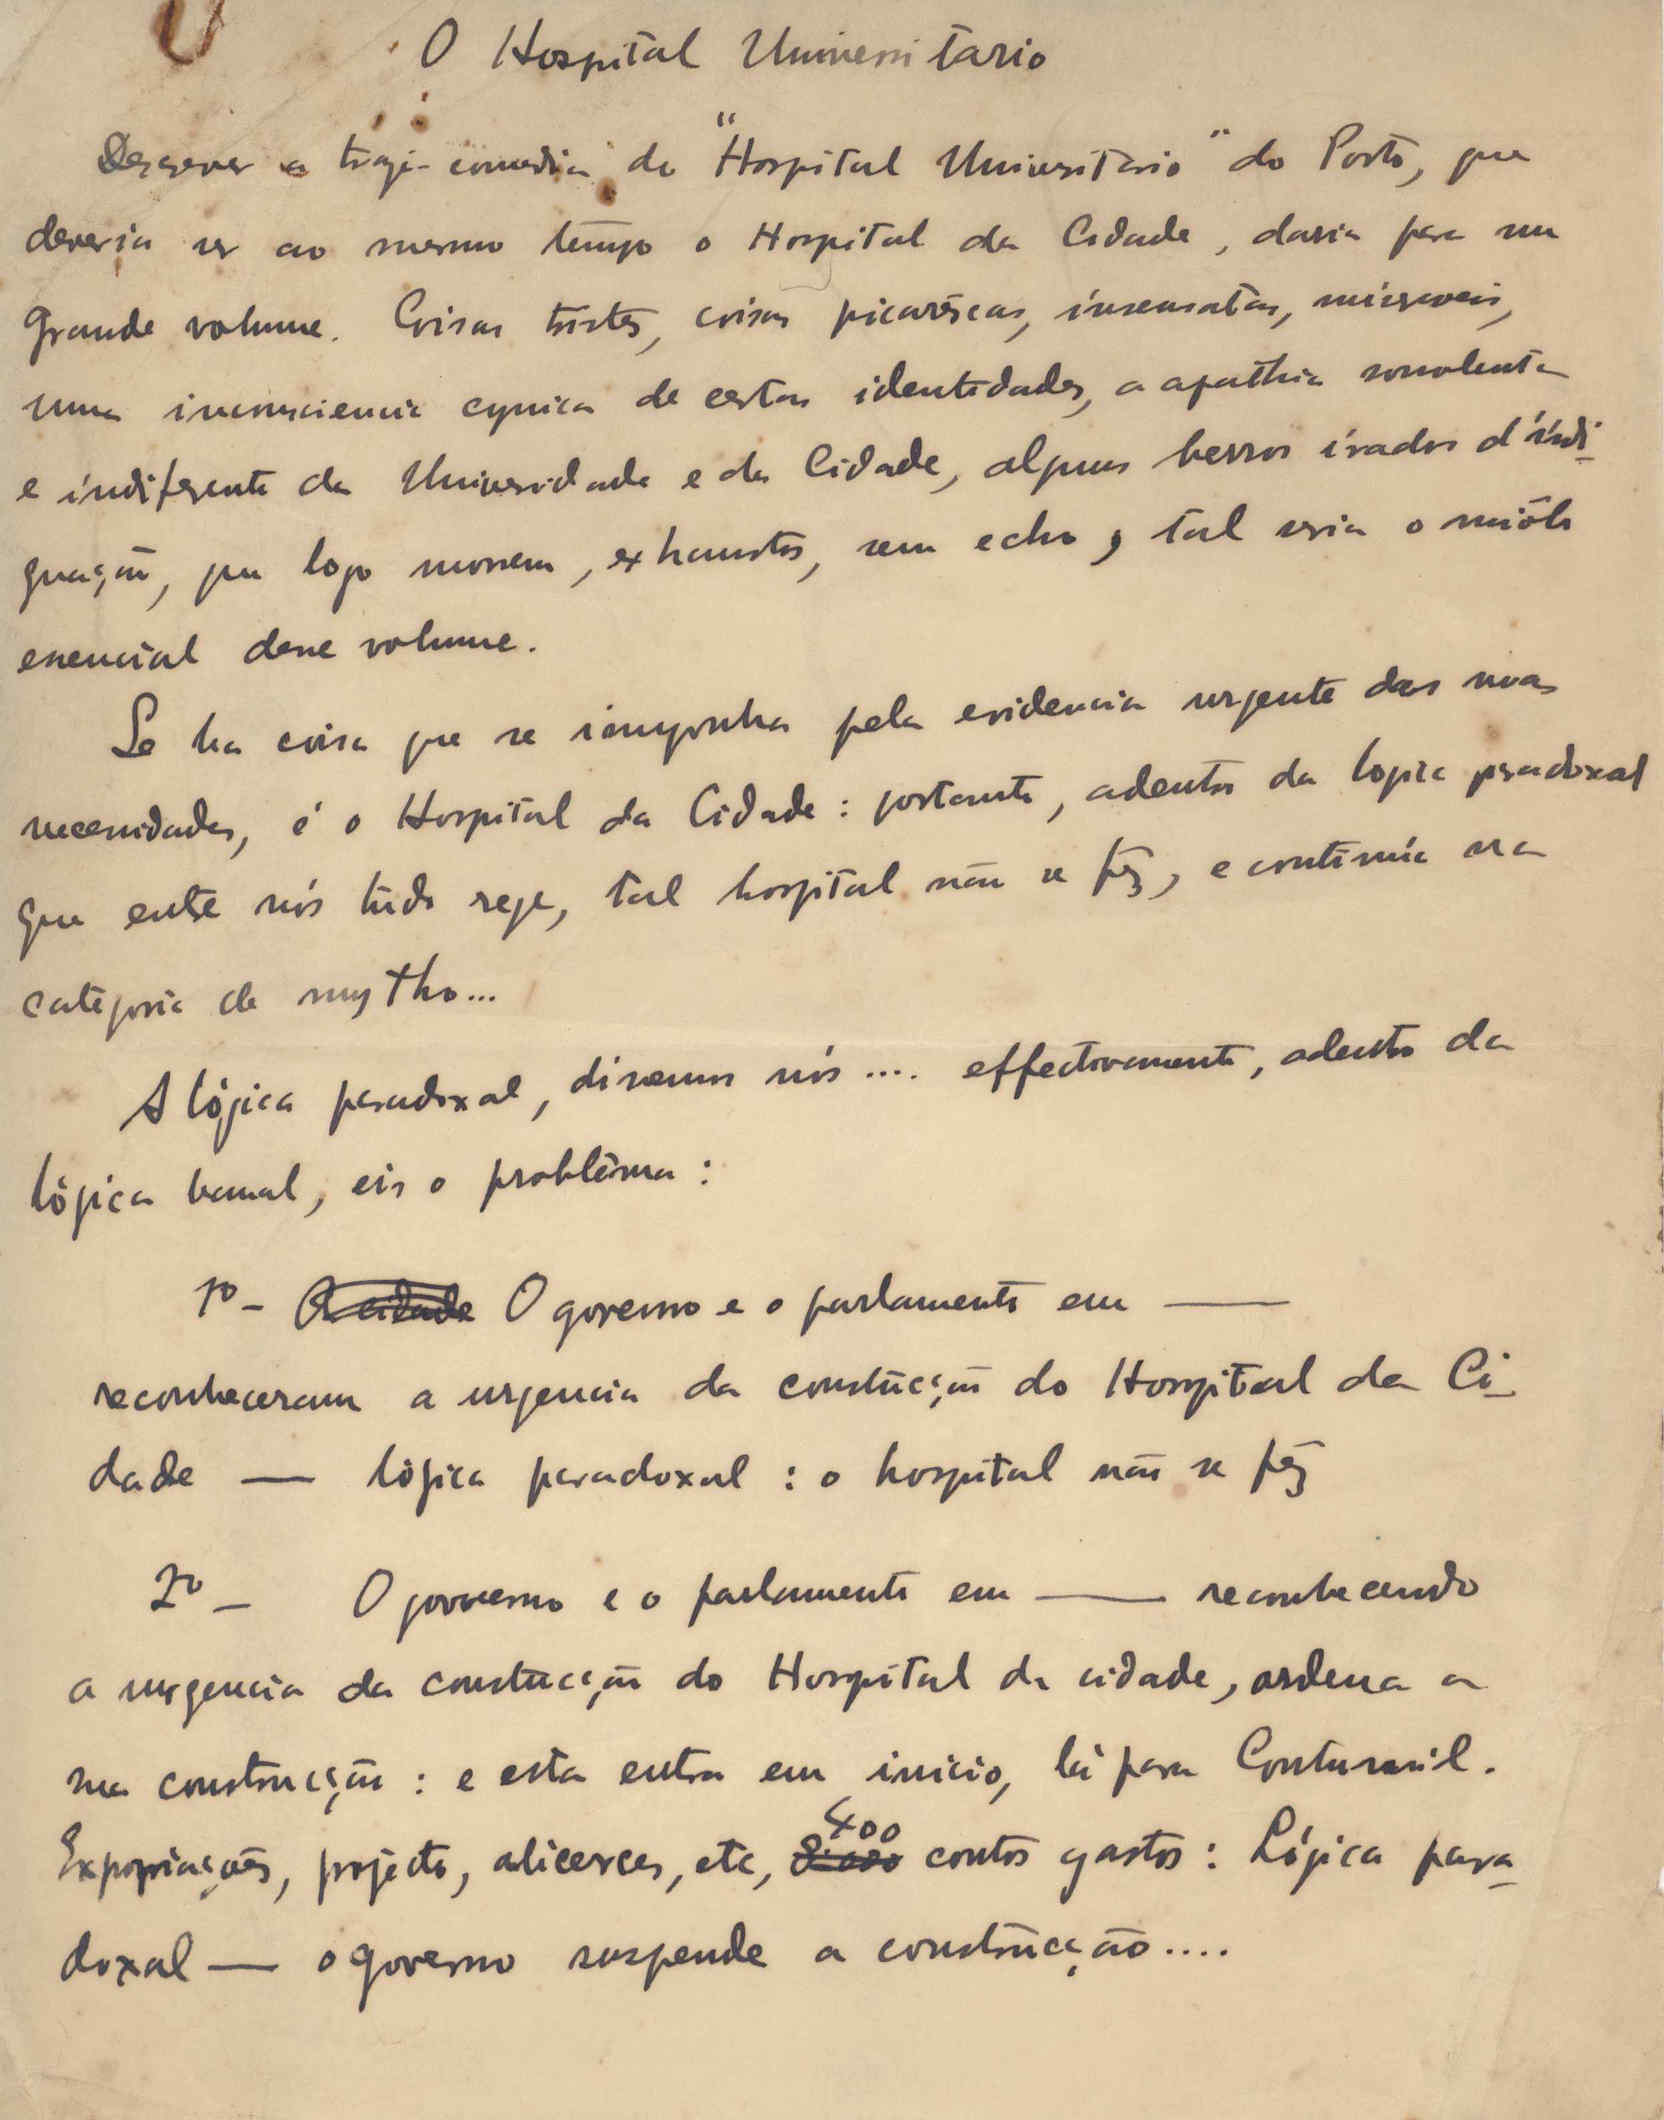 O Hospital Universitario
Descrever a tragi-comedia do "Hospital Universitario" do Porto, que
deveria ser ao mesmo tempo o Hospital da Cidade, daria para um
grande volume. Coisas tristes, coisas picarêscas, insensatas, miseraveis,
uma inconsciencia cynica de certas identidades, a apathia sonolenta
e indiferente da Universidade e da Cidade, alguns berros irados d'indi-
gnação, que logo morrem, exhaustos, sem echo, tal seria o miôlo
essencial desse volume.
Se ha coisa que se imponha pela evidencia urgente das suas
necessidades, é o Hospital da Cidade: portanto, adentro da logica paradoxal
que entre nós tudo rege, tal hospital não se fez, e continúa na
categoria de mytho...
A lógica paradoxal, dissemos nós .... effectivamente, adentro da
lógica banal, eis o problêma:
1º - A cidade O governo e o parlamento em ——
reconheceram a urgencia da construcção do Hospital da Ci-
dade — lógica paradoxal: o hospital não se fez
2º - O governo e o parlamento em —— reconhecendo
a urgencia da construcção do Hospital da cidade, ordena a
sua construcção: e esta entra em inicio, lá para Contumil.
400
Expropriações, projecto, alicerces, etc, contos gastos: Lógica para-
doxal — o governo suspende a construcção....